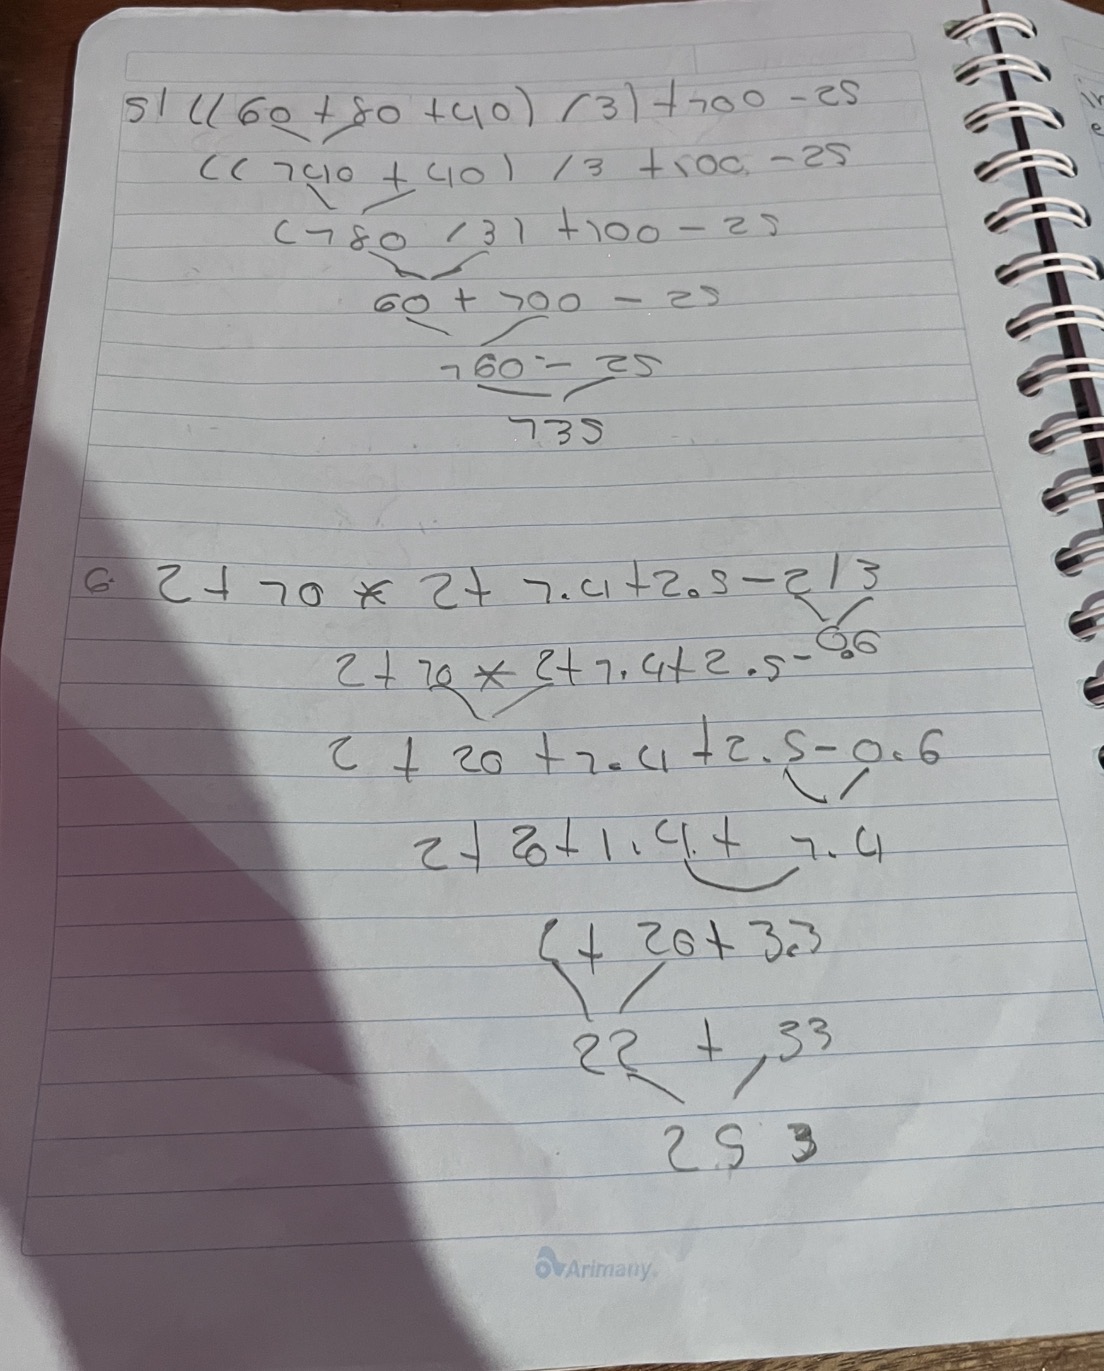 5) ((60 + 80 + 40) / 3) + 100 - 25
((140 + 40) / 3 + 100 - 25
(180 / 3) + 100 - 25
60 + 100 - 25
160 - 25
135
6. 2 + 10 * 2 + 1.4 + 2.5 - 2 / 3
2 + 10 * 2 + 1.4 + 2.5 - 0.6
2 + 20 + 1.4 + 2.5 - 0.6
2 + 2 + 1.4 + 1.4
2 + 20 + 3.3
22 + ,33
25 3
Arimany